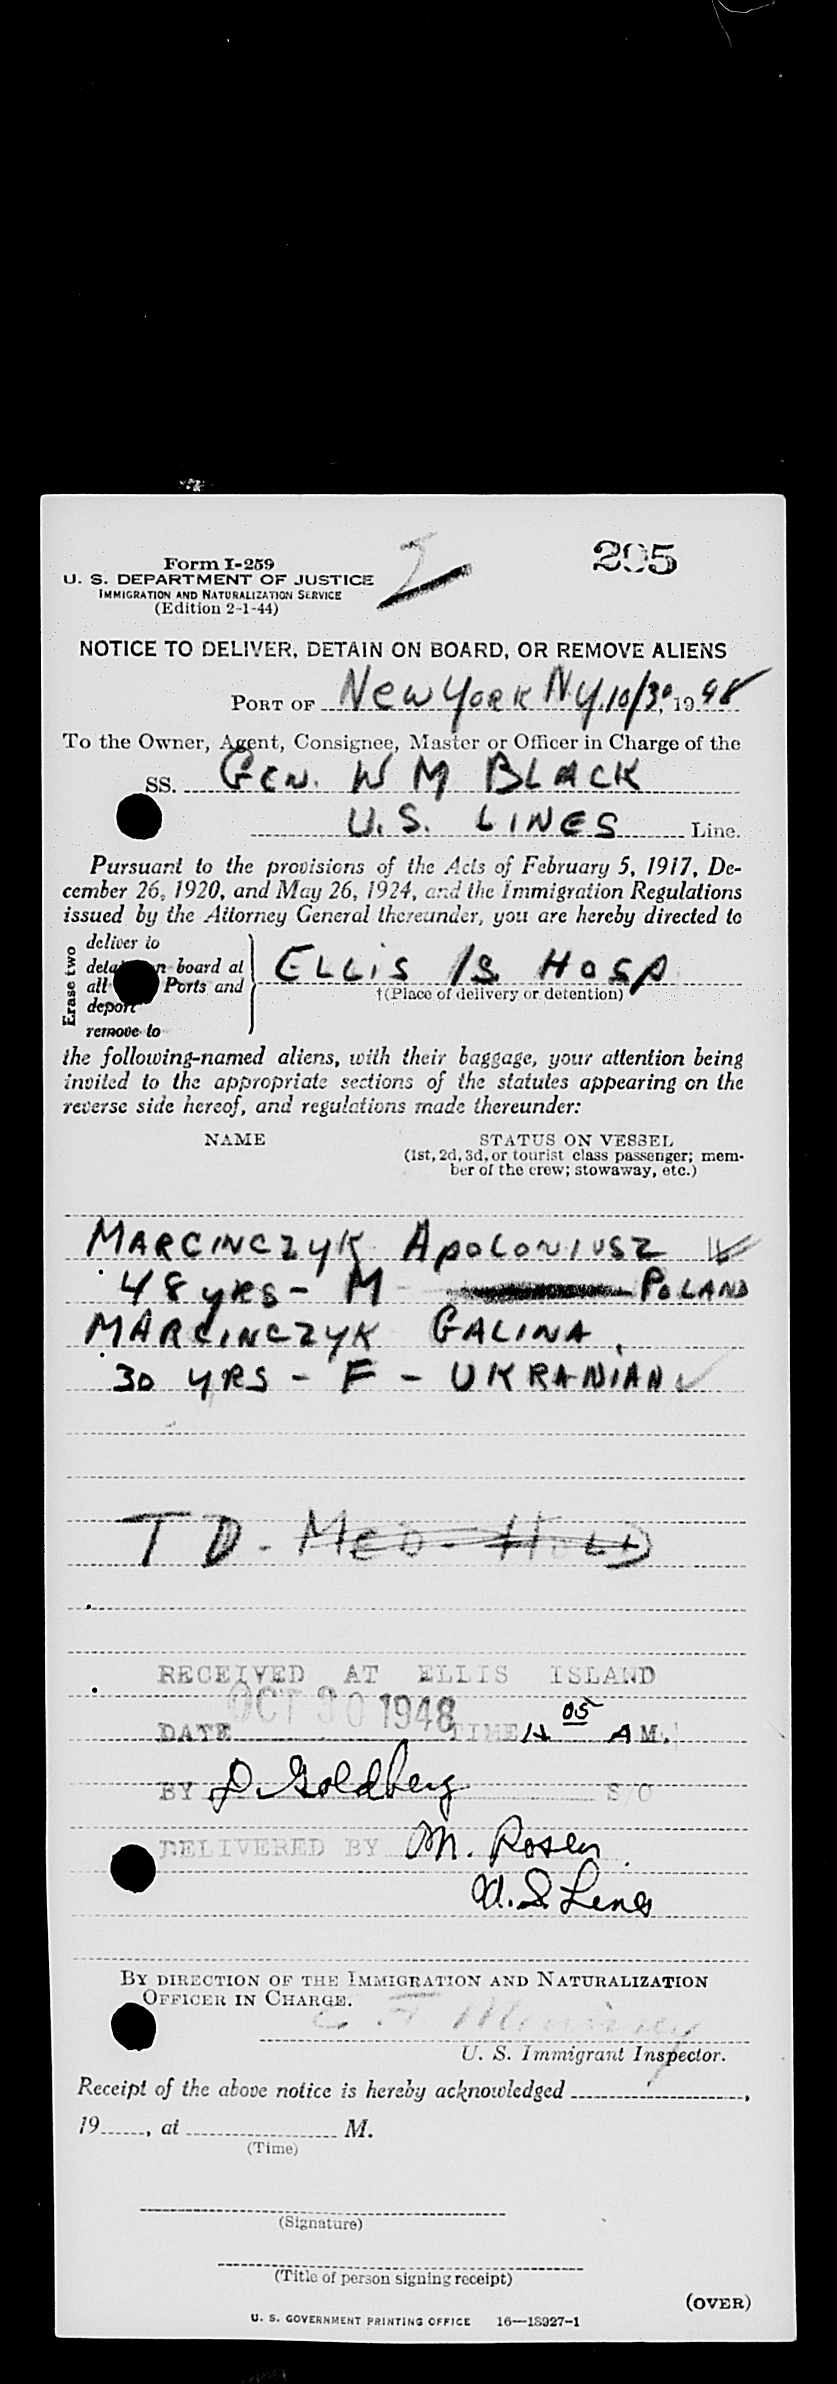 Form I-259
U. S. DEPARTMENT OF JUSTICE
IMMIGRATION AND NATURALIZATION SERVICE
(Edition 2-1-44)
NOTICE TO DELIVER, DETAIN ON BOARD, OR REMOVE ALIENS
PORT OF New YORK NY, 10/30, 1948
To the Owner, Agent, Consignee, Master or Officer in Charge of the
SS. GEN. WM BLACK
U.S. LINES Line.
Pursuant to the provisions of the Acts of February 5, 1917, De-
cember 26, 1920, and May 26, 1924, and the Immigration Regulations
issued by the Attorney General thereunder, you are hereby directed to
Erase two
deliver to
board at
all Ports and
deport
remove to
ELLIS IS HOSP
†(Place of delivery or detention)
the following-named aliens, with their baggage, your attention being
invited to the appropriate sections of the statutes appearing on the
reverse side hereof, and regulations made thereunder:
NAME STATUS ON VESSEL
(1st, 2d, 3d, or tourist class passenger; mem-
ber of the crew; stowaway, etc.)
MARCINCZYK APOLONIUSZ
48 YRS - M - POLAND
MARCINCZYK GALINA
30 YRS - F - UKRANIAN
TD - MED - HOLD
RECEIVED AT ELLIS ISLAND
OCT 30 1948
DATE TIME 05 A M.
BY D. Goldberg S/O
DELIVERED BY M. Rosen
U.S. Lines
BY DIRECTION OF THE IMMIGRATION AND NATURALIZATION
OFFICER IN CHARGE.
U. S. Immigrant Inspector.
Receipt of the above notice is hereby acknowledged ,
19 , at M.
(Time)
(Signature)
(Title of person signing receipt)
(OVER)
U. S. GOVERNMENT PRINTING OFFICE 16—18927-1